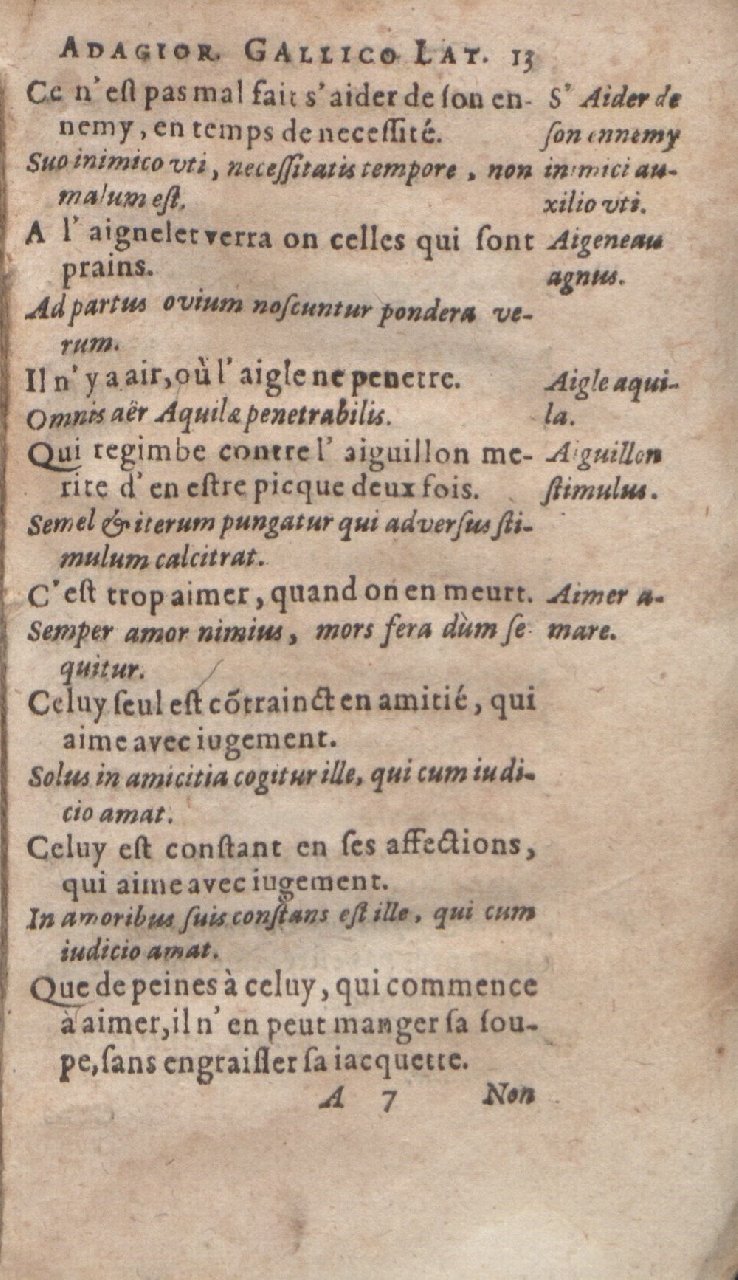 ADAGIOR. GALLICO LAT. 13
Ce n'eſt pas mal fait s'aider de ſon en-
nemy, en temps de neceſſité.
Suo inimico vti, neceſſitatis tempore, non
malum eſt.
A l'aignelet verra on celles qui ſont
prains.
Ad partus ovium noſcuntur pondera ve-
rum.
Il n'y a air, où l'aigle ne penetre.
Omnis aër Aquilæ penetrabilis.
Qui regimbe contre l'aiguillon me-
rite d'en eſtre picque deux fois.
Semel & iterum pungatur qui adverſus ſti-
mulum calcitrat.
C'eſt trop aimer, quand on en meurt.
Semper amor nimius, mors fera dùm ſe-
quitur.
Celuy ſeul eſt cõtrainct en amitié, qui
aime avec iugement.
Solus in amicitia cogitur ille, qui cum iudi-
cio amat.
Celuy eſt conſtant en ſes affections,
qui aime avec iugement.
In amoribus ſuis conſtans eſt ille, qui cum
iudicio amat.
Que de peines à celuy, qui commence
à aimer, il n'en peut manger ſa ſou-
pe, ſans engraiſſer ſa iacquette.
A 7 Non
S' Aider de
ſon ennemy
inimici au-
xilio vti.
Aigeneau
agnus.
Aigle aqui-
la.
Aiguillon
ſtimulus.
Aimer a-
mare.